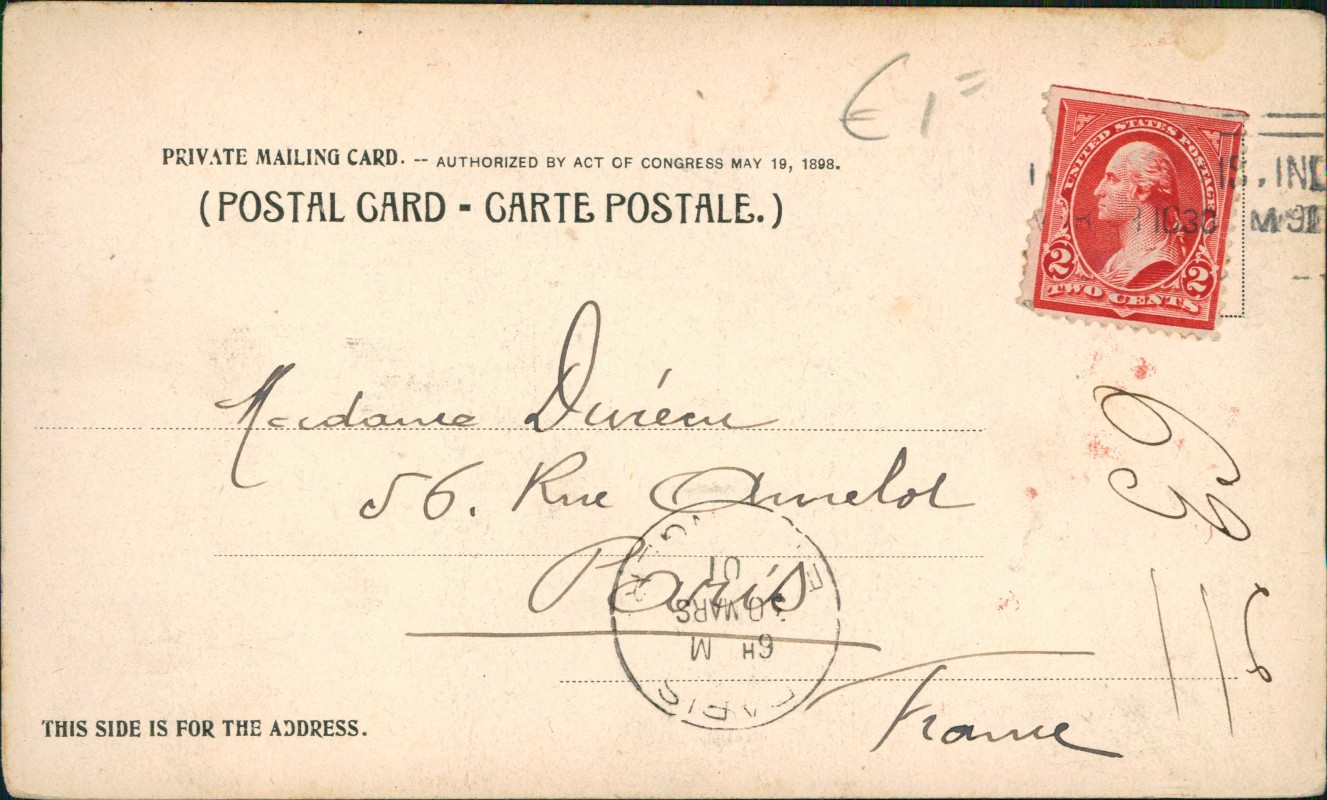 € 1=
PRIVATE MAILING CARD. -- AUTHORIZED BY ACT OF CONGRESS MAY 19, 1898.
(POSTAL CARD - CARTE POSTALE.)
UNITED STATES POSTAGE
2 2
TWO CENTS
IS, IND
1030
Madame Divéeu
56. Rue Amelot
Paris
France
PARIS
6H M
30 MARS
01
THIS SIDE IS FOR THE ADDRESS.